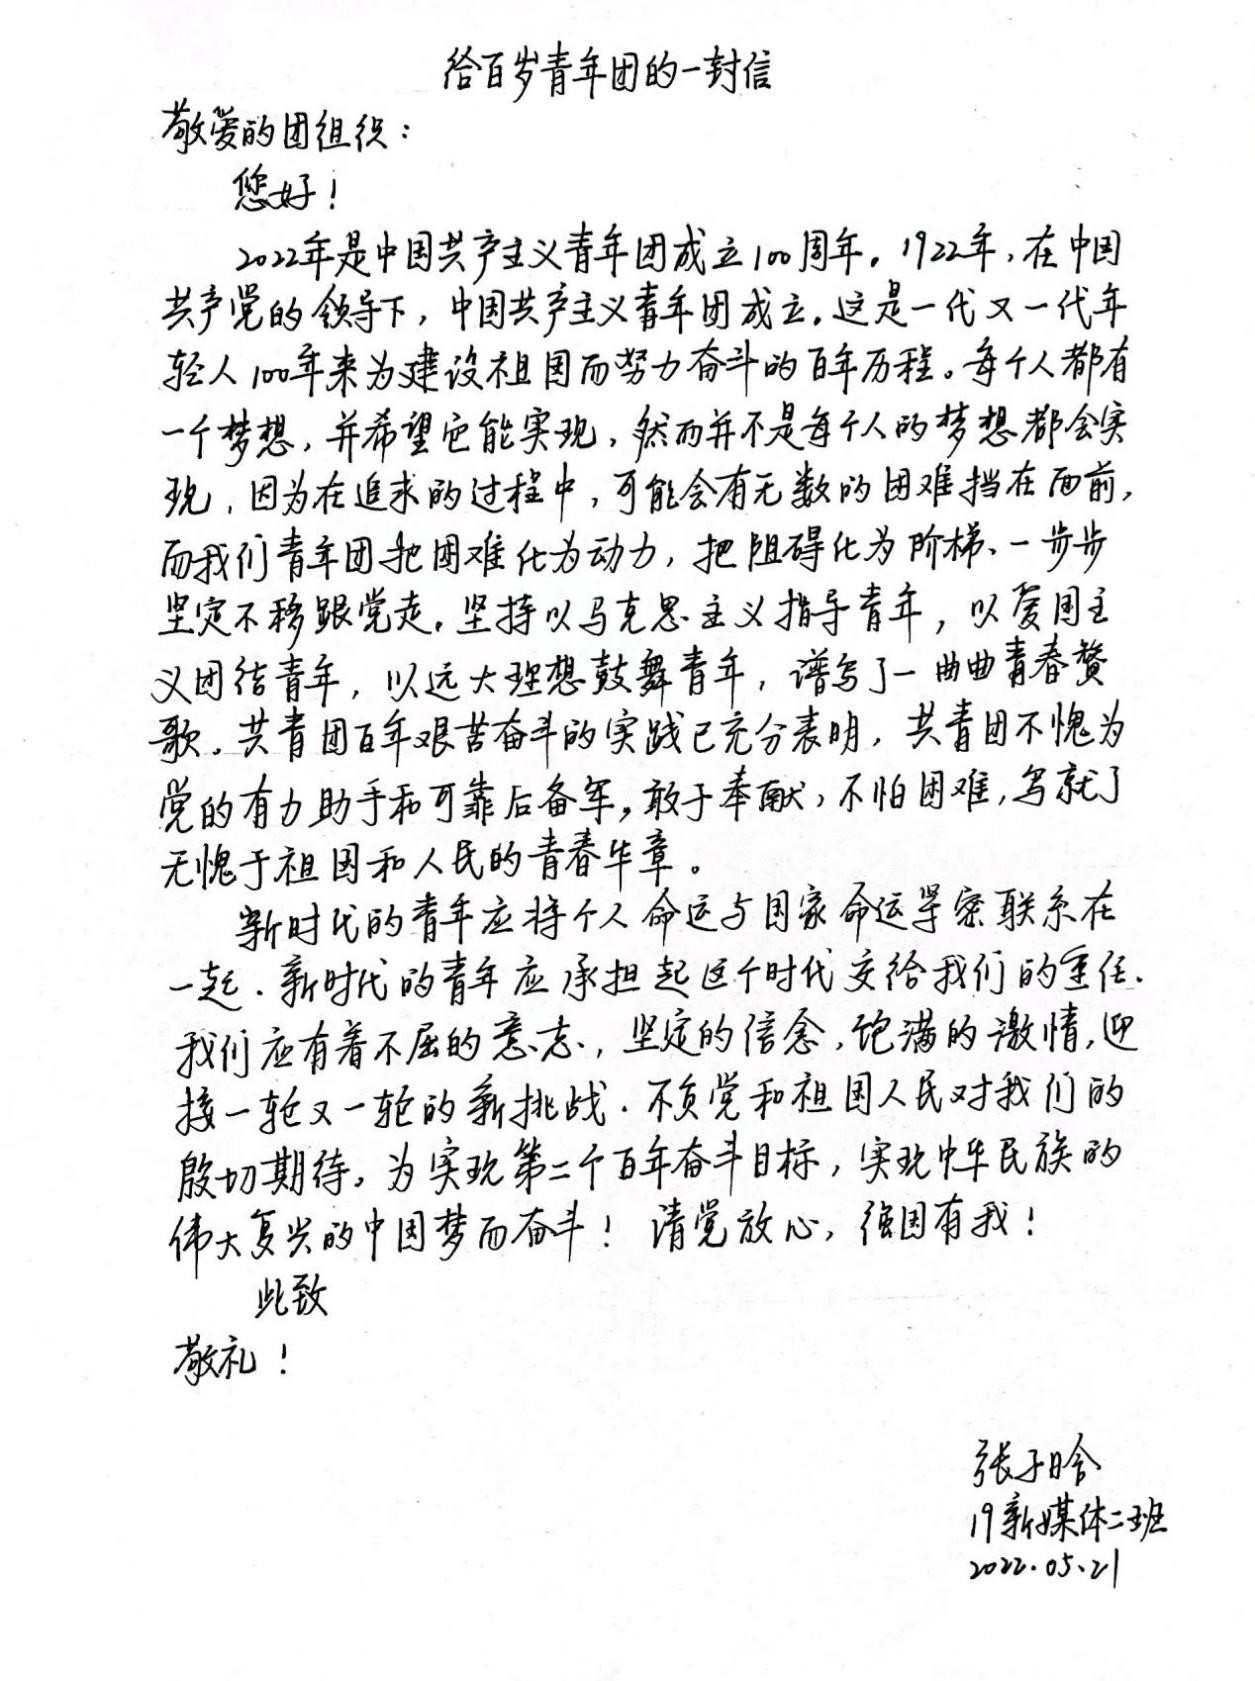 给百岁青年团的一封信
敬爱的团组织：
您好！
2022年是中国共产主义青年团成立100周年。1922年，在中国
共产党的领导下，中国共产主义青年团成立。这是一代又一代年
轻人100年来为建设祖国而努力奋斗的百年历程。每个人都有
一个梦想，并希望它能实现，然而并不是每个人的梦想都会实
现，因为在追求的过程中，可能会有无数的困难挡在面前，
而我们青年团把困难化为动力，把阻碍化为阶梯、一步步
坚定不移跟党走。坚持以马克思主义指导青年，以爱国主
义团结青年，以远大理想鼓舞青年，谱写了一曲曲青春赞
歌。共青团百年艰苦奋斗的实践已充分表明，共青团不愧为
党的有力助手和可靠后备军，敢于奉献，不怕困难，写就了
无愧于祖国和人民的青春华章。
新时代的青年应将个人命运与国家命运紧密联系在
一起．新时代的青年应承担起这个时代交给我们的重任．
我们应有着不屈的意志，坚定的信念，饱满的激情，迎
接一轮又一轮的新挑战．不负党和祖国人民对我们的
殷切期待。为实现第二个百年奋斗目标，实现中华民族的
伟大复兴的中国梦而奋斗！请党放心，强国有我！
此致
敬礼！
张子晗
19新媒体二班
2022.05.21